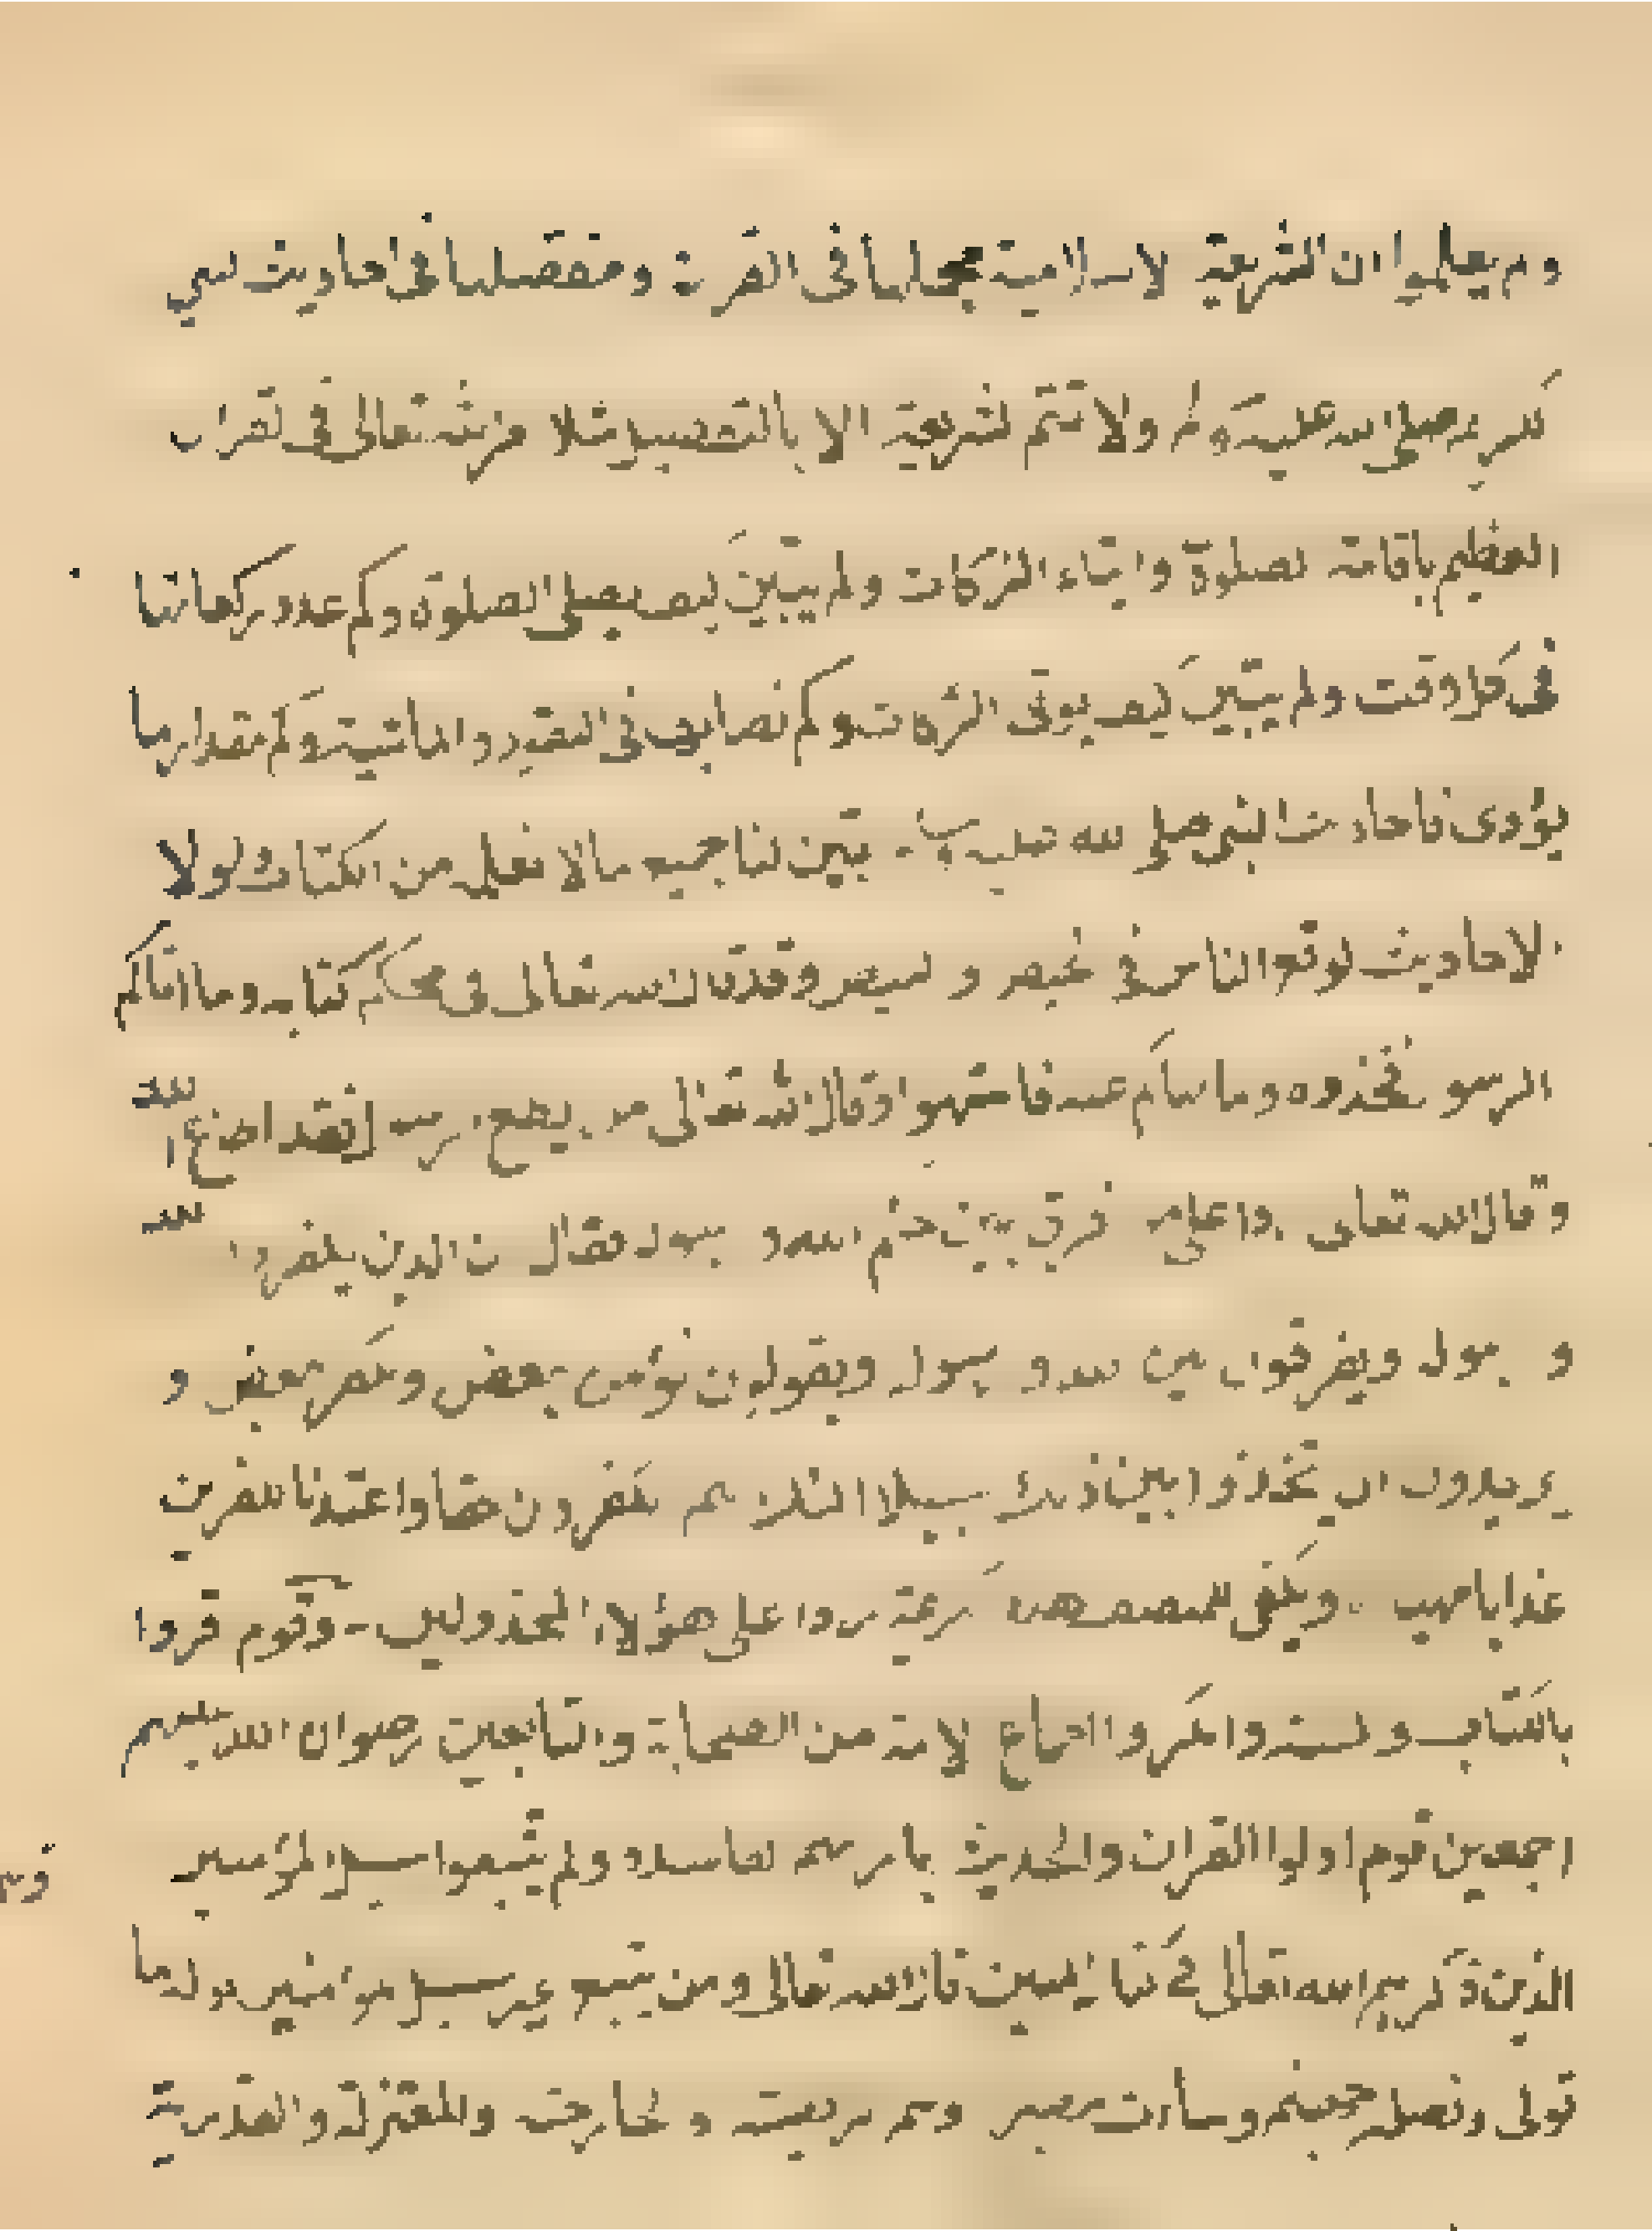 ولم يعلموا ان الشريعة الاسلامية مجملها فى القران ومفصلها فى احاديث النبي
الكريم صلى الله عليه وسلم ولا تتم الشريعة الا بالتفصيل مثلا فرض الله تعالى فى القران
العظيم باقامة الصلوة وايتاء الزكات ولم يتبين كيف يصلى الصلوة وكم عدد ركعاتها
فى كل وقت ولم يتبين كيف يوتى الزكات وكم نصابه فى النقدين والماشية وكم مقدار ما
يؤدى فاحاديث النبى صلى الله عليه تبين لنا جميع مالا نعلم من الكتاب ولولا
الاحاديث لوقع الناس فى وقد قال الله تعالى فى محكم كتابه وما اتاكم
الرسول فخذوه وما نهاكم عنه فانتهوا وقال الله تعالى من يطع الرسول فقد اطاع الله
وقال الله تعالى فرق بين حكم الله و رسوله فقال ان الذين يكفرون بالله
و رسوله ويفرقون بين الله و رسوله ويقولون نؤمن ببعض ونكفر ببعض و
يريدون ان يتخذوا بين ذلك سبيلا اولئك هم الكفرون حقا واعتدنا للكفرين
عذابا مهينا ويكفى للمنصف هذه ردا على هؤلاء المخذولين - وقوم قروا
بالكتاب والسنة وانكروا اجماع الامة من الصحابة والتابعين رضوان الله عليهم
اجمعين وقوم اولوا القران والحديث بارائهم الفاسدة ولم يتبعوا سبيل المؤمنين
الذين ذكرهم الله تعالى فى كتابه المبين قال الله تعالى ومن يتبع غير سبيل المؤمنين نوله ما
تولى ونصله جهنم وساءت مصيرا وهم والخارجية والمعتزلة والقدرية